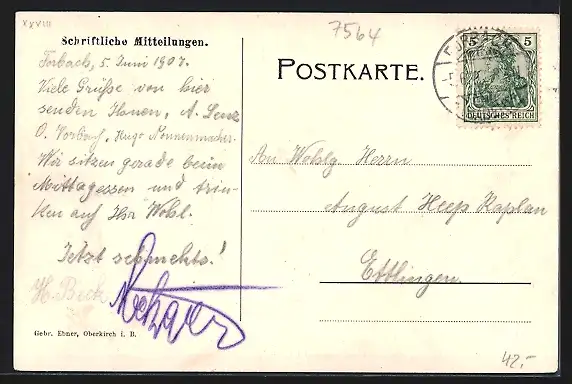 XXVIII
7564
Schriftliche Mitteilungen.
Forbach, 5. Juni 1907.
Viele Grüße von hier
senden Ihnen, A. Lenz
O. Vorbach, Hugo Nonnenmacher.
Wir sitzen gerade beim
Mittagessen und trin-
ken auf Ihr Wohl.
Jetzt schmeckts!
H. Beck
Gebr. Ebner, Oberkirch i. B.
POSTKARTE.
5 5
DEUTSCHES REICH
An Wohlg Herrn
August Heep Kaplan
Ettlingen.
42.-